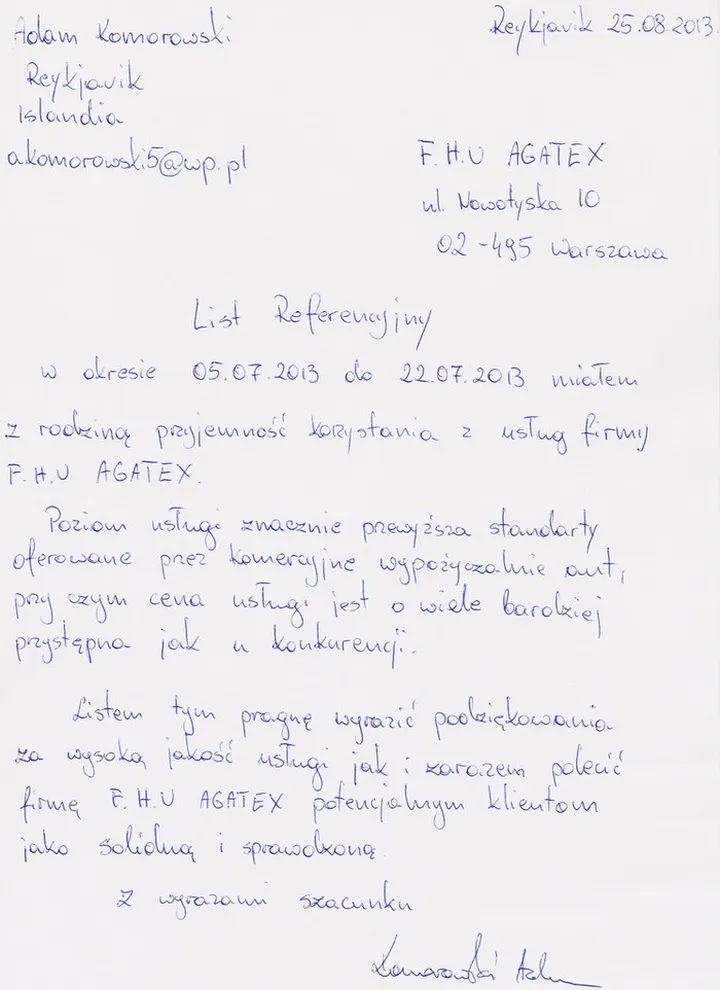 Adam Komorowski
Reykjavik 25.08.2013
Reykjavik
Islandia
a.komorowski5@wp.pl
F.H.U AGATEX
ul. Nowotyska 10
02-495 Warszawa
List Referencyjny
w okresie 05.07.2013 do 22.07.2013 miałem
z rodziną przyjemność korzystania z usług firmy
F.H.U AGATEX.
Poziom usługi znacznie przewyższa standarty
oferowane przez komercyjne wypożyczalnie aut,
przy czym cena usługi jest o wiele bardziej
przystępna jak u konkurencji.
Listem tym pragnę wyrazić podziękowania
za wysoką jakość usługi jak i zarazem polecić
firmę F.H.U AGATEX potencjalnym klientom
jako solidną i sprawdzoną
Z wyrazami szacunku
Komorowski Adam